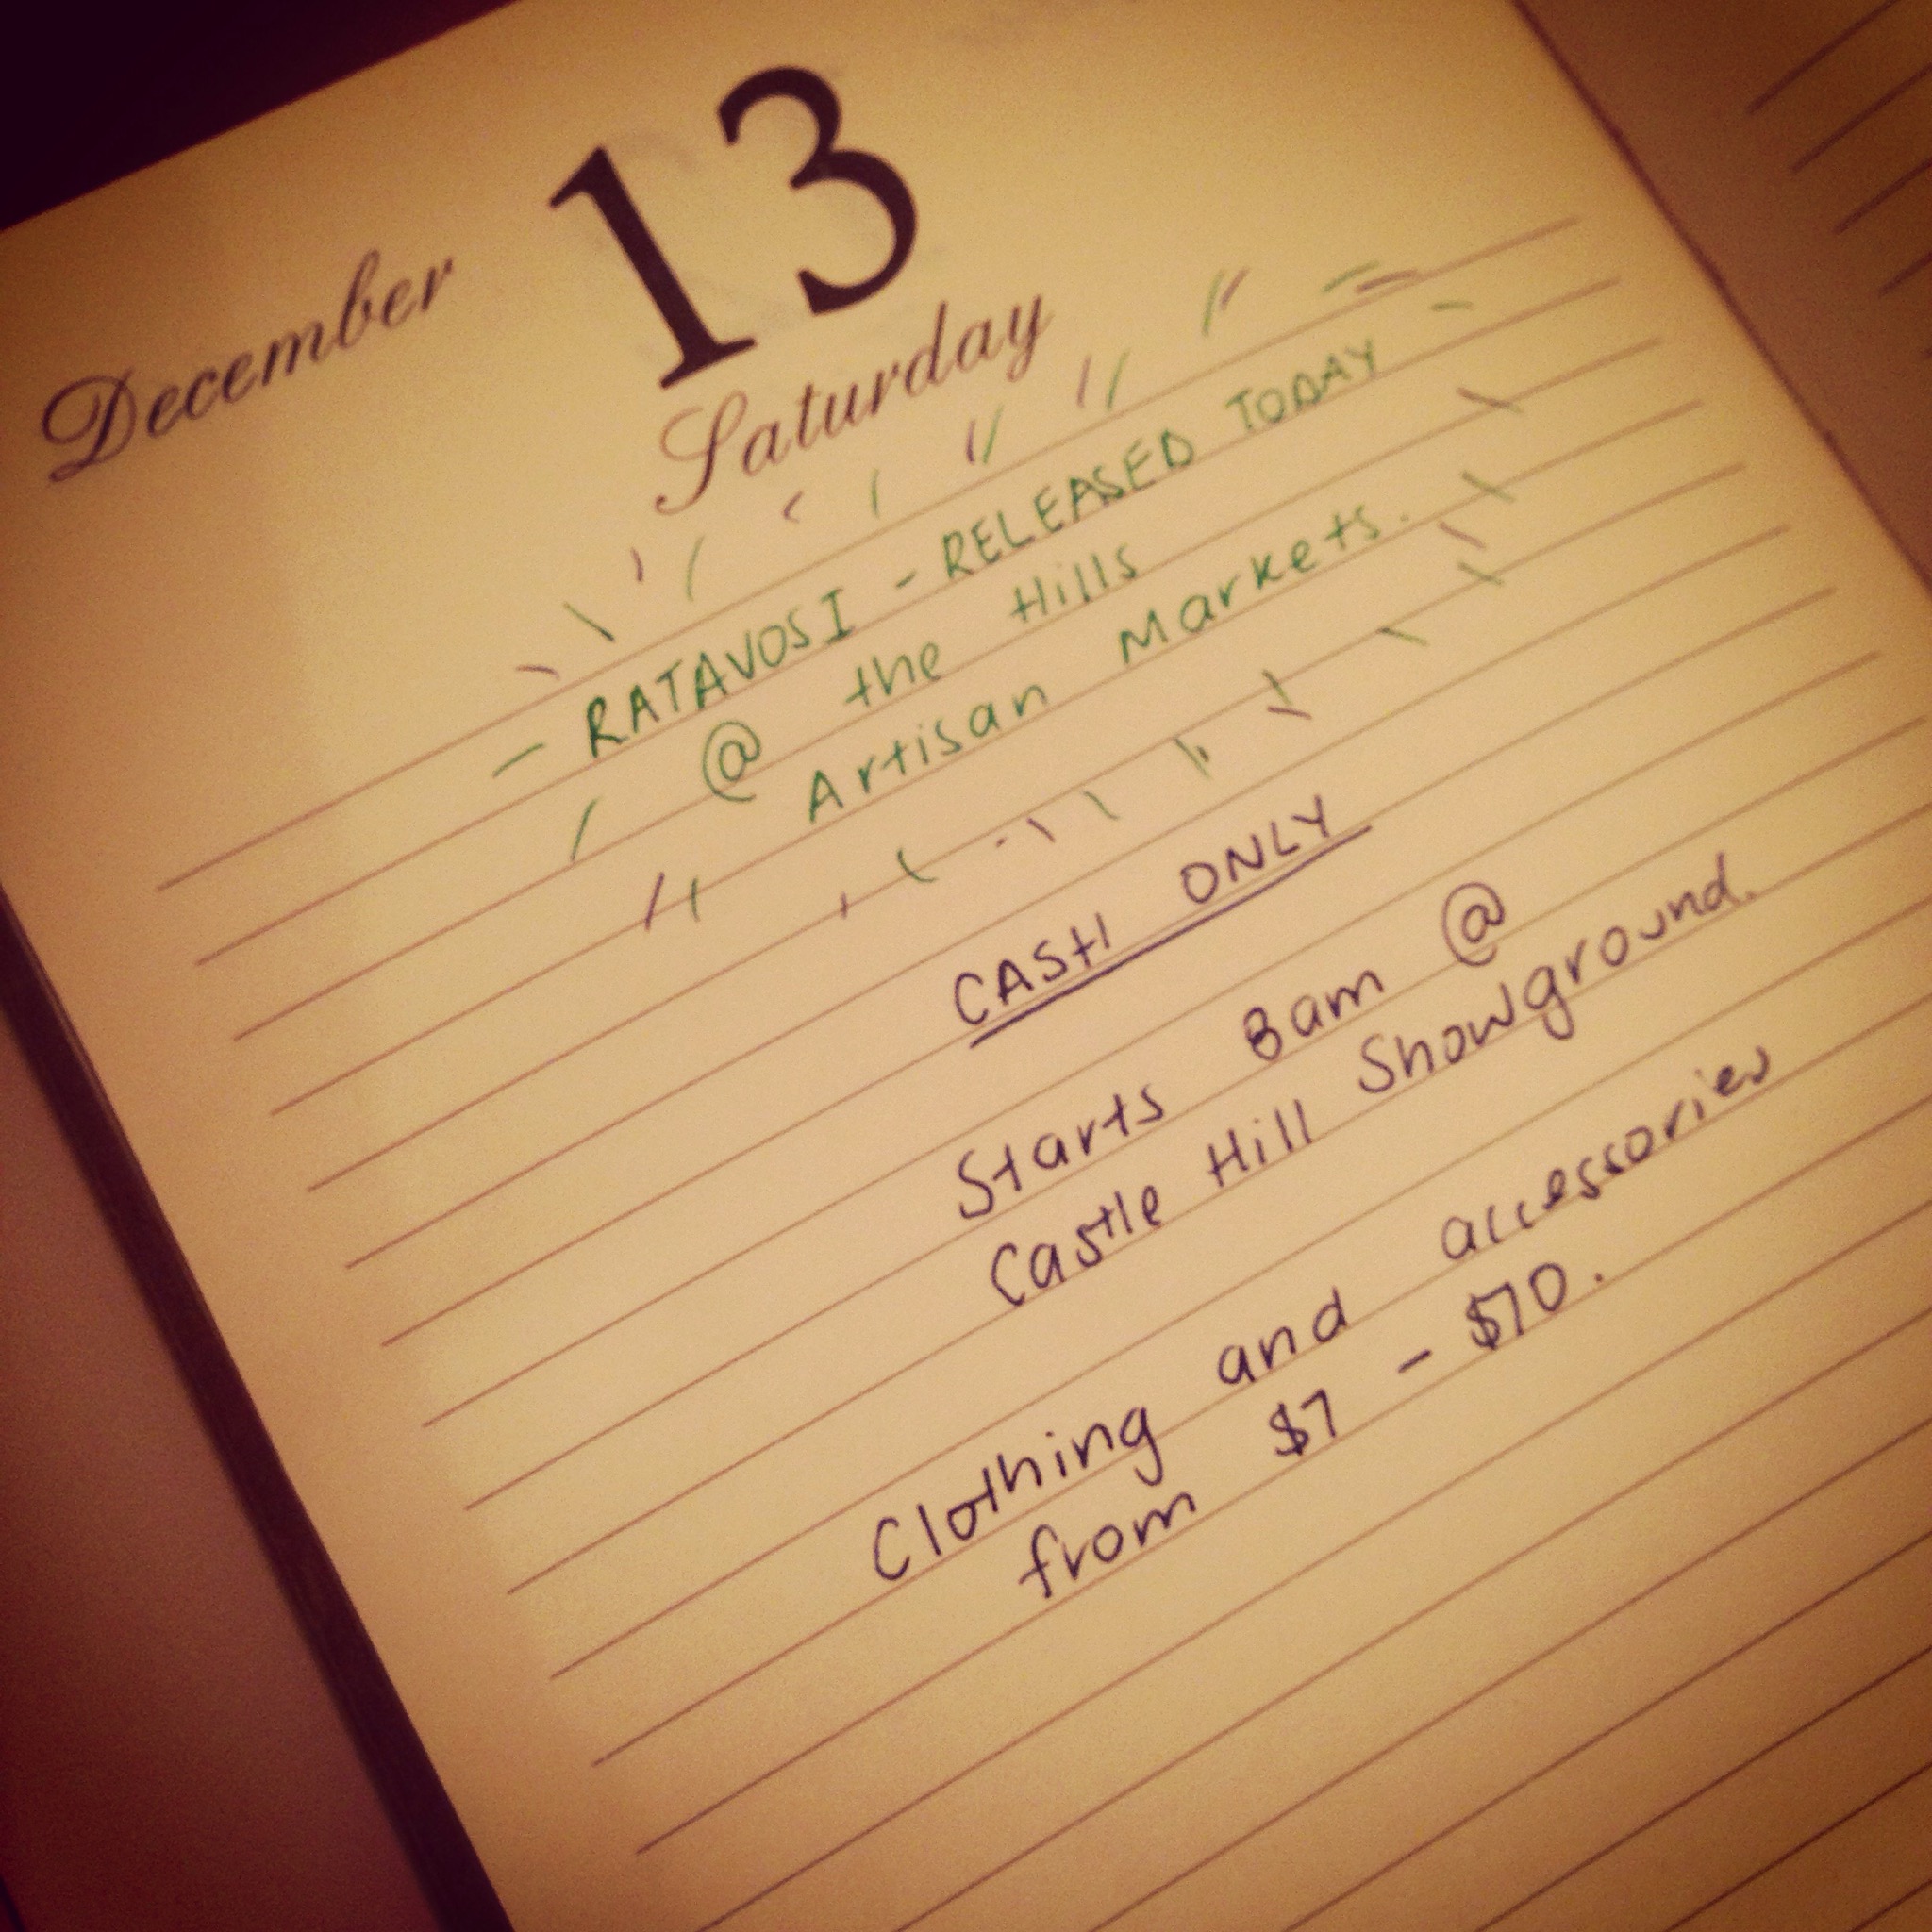 December 13
Saturday
- RATAVOSI - RELEASED TODAY
@ the Hills
Artisan Markets.
CASH ONLY
Starts 8am @
Castle Hill Showground.
Clothing and accessories
from $7 - $70.